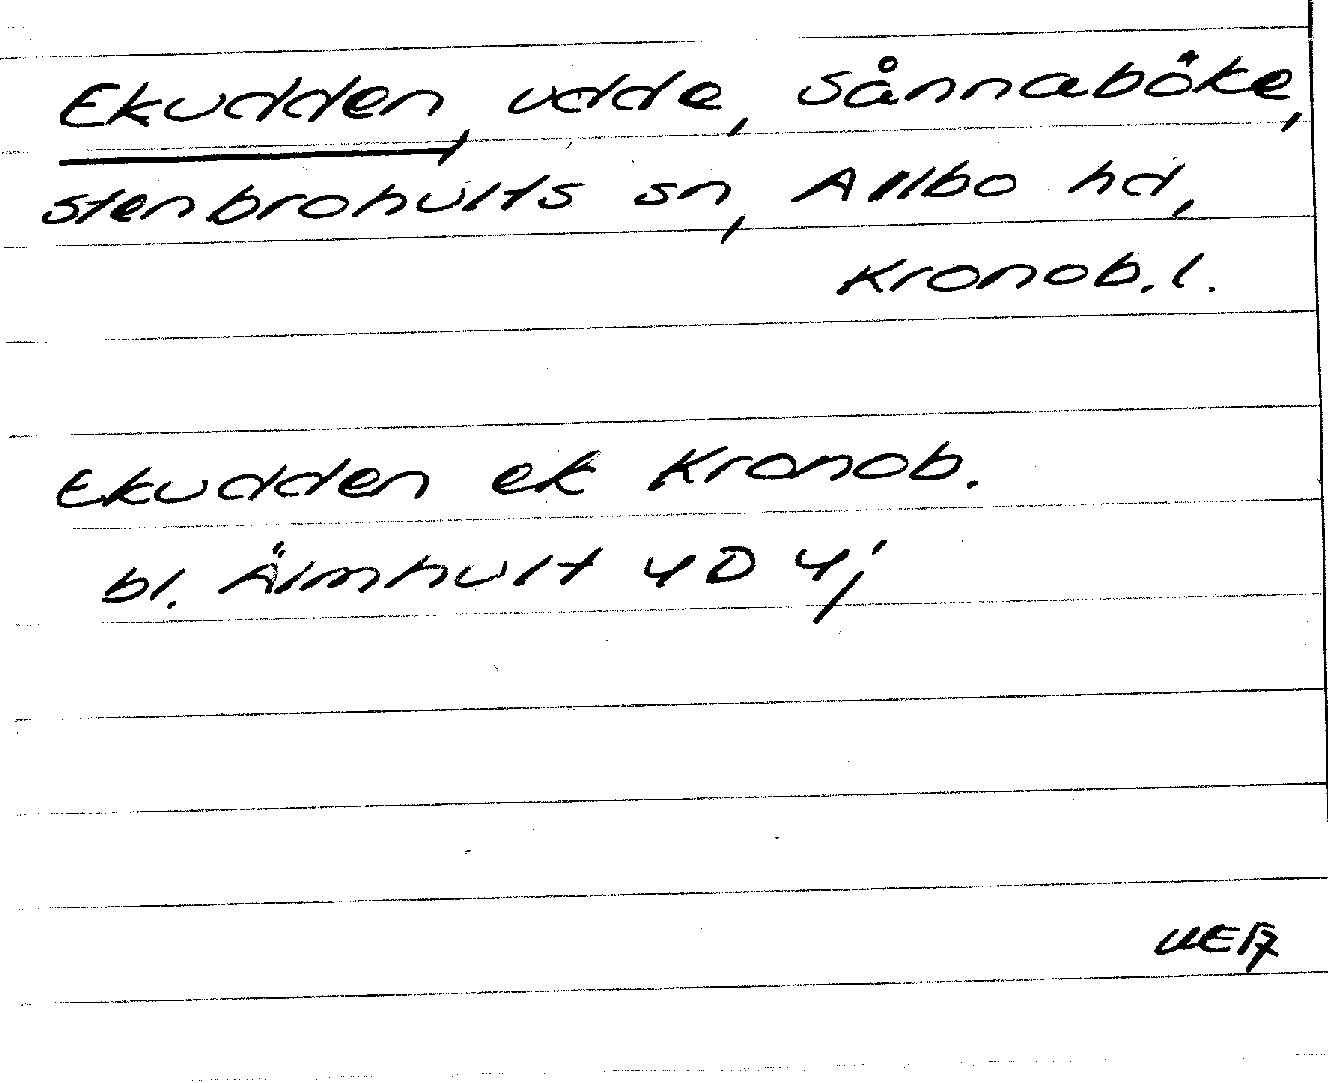 Ekudden, udde, Sånnaböke,
Stenbrohults sn, Allbo hd,
Kronob. l.
Ekudden ek Kronob.
bl. Älmhult 4D 4j